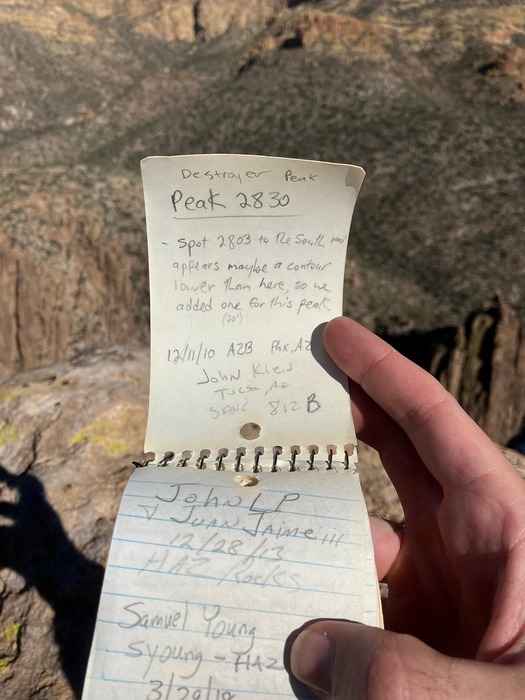 Destroyer Peak
Peak 2830
- Spot 2803 to the South
appears maybe a contour
lower than here, so we
added one for this peak.
(20')
12/11/10 AZB Phx, AZ
John Klein
Tucson, AZ
812 B
John LP
& Juan Jaime iii
12/28/12
HAZ / Rocks
Samuel Young
syoung - HAZ